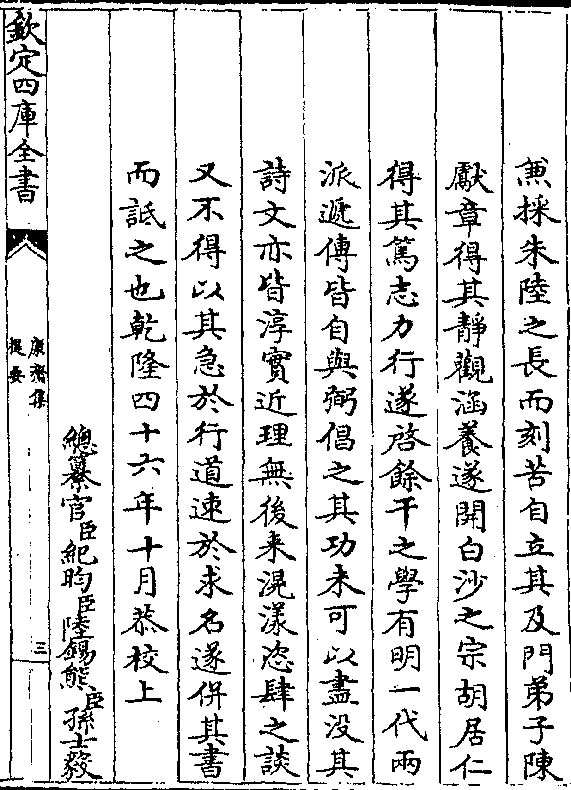 兼採朱陸之長而刻苦自立其及門弟子陳
獻章得其靜觀涵養遂開白沙之宗胡居仁
得其篤志力行遂啓餘干之學有明一代兩
派遞傳皆自與弼倡之其功未可以盡没其
詩文亦皆淳實近理無後来滉漾恣肆之談
又不得以其急於行道速於求名遂併其書
而詆之也乾隆四十六年十月恭校上
總纂官臣紀昀臣陸錫熊臣孫士毅
欽定四庫全書
康齋集
提要
三